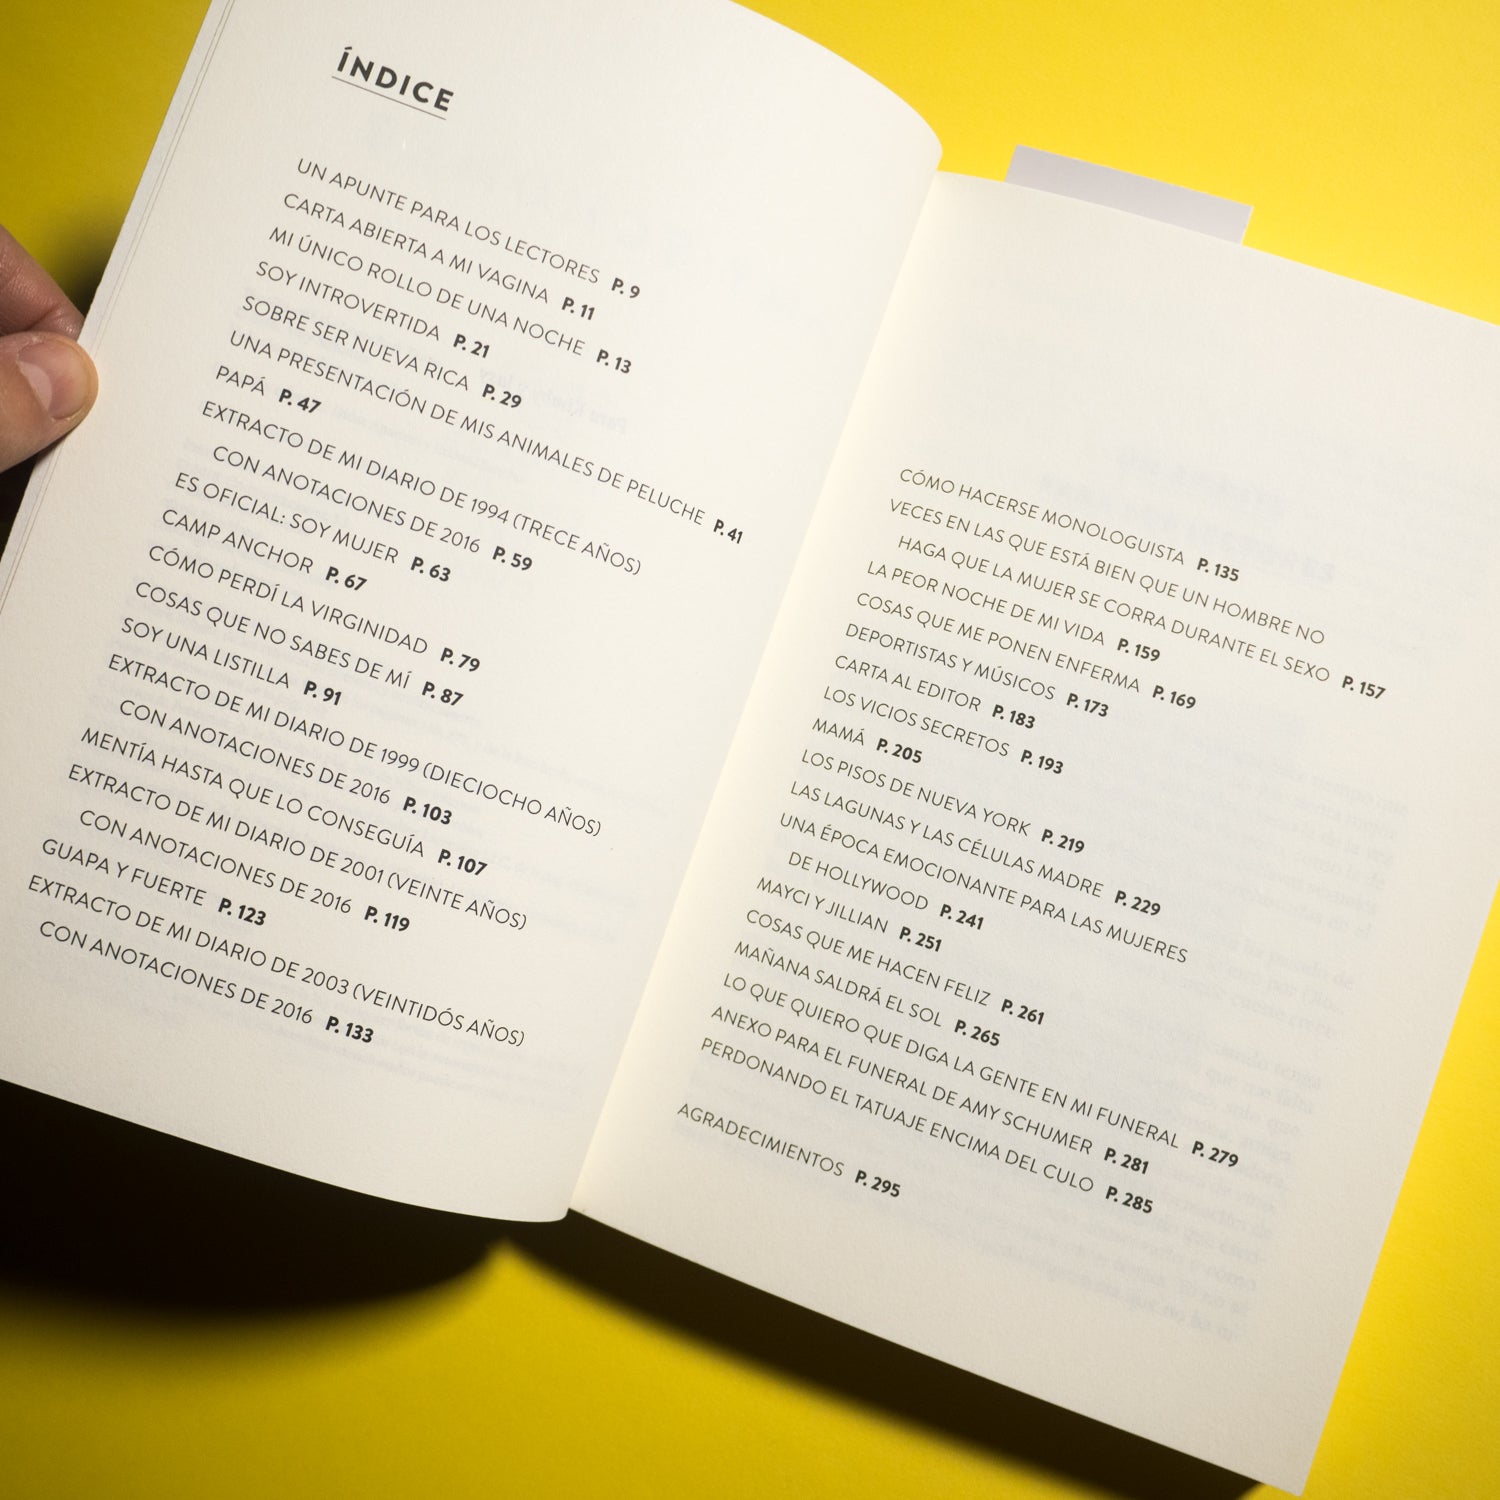 ÍNDICE
UN APUNTE PARA LOS LECTORES P. 9
CARTA ABIERTA A MI VAGINA P. 11
MI ÚNICO ROLLO DE UNA NOCHE P. 13
SOY INTROVERTIDA P. 21
SOBRE SER NUEVA RICA P. 29
UNA PRESENTACIÓN DE MIS ANIMALES DE PELUCHE P. 41
PAPÁ P. 47
EXTRACTO DE MI DIARIO DE 1994 (TRECE AÑOS)
CON ANOTACIONES DE 2016 P. 59
ES OFICIAL: SOY MUJER P. 63
CAMP ANCHOR P. 67
CÓMO PERDÍ LA VIRGINIDAD P. 79
COSAS QUE NO SABES DE MÍ P. 87
SOY UNA LISTILLA P. 91
EXTRACTO DE MI DIARIO DE 1999 (DIECIOCHO AÑOS)
CON ANOTACIONES DE 2016 P. 103
MENTÍA HASTA QUE LO CONSEGUÍA P. 107
EXTRACTO DE MI DIARIO DE 2001 (VEINTE AÑOS)
CON ANOTACIONES DE 2016 P. 119
GUAPA Y FUERTE P. 123
EXTRACTO DE MI DIARIO DE 2003 (VEINTIDÓS AÑOS)
CON ANOTACIONES DE 2016 P. 133
CÓMO HACERSE MONOLOGUISTA P. 135
VECES EN LAS QUE ESTÁ BIEN QUE UN HOMBRE NO
HAGA QUE LA MUJER SE CORRA DURANTE EL SEXO P. 157
LA PEOR NOCHE DE MI VIDA P. 159
COSAS QUE ME PONEN ENFERMA P. 169
DEPORTISTAS Y MÚSICOS P. 173
CARTA AL EDITOR P. 183
LOS VICIOS SECRETOS P. 193
MAMÁ P. 205
LOS PISOS DE NUEVA YORK P. 219
LAS LAGUNAS Y LAS CÉLULAS MADRE P. 229
UNA ÉPOCA EMOCIONANTE PARA LAS MUJERES
DE HOLLYWOOD P. 241
MAYCI Y JILLIAN P. 251
COSAS QUE ME HACEN FELIZ P. 261
MAÑANA SALDRÁ EL SOL P. 265
LO QUE QUIERO QUE DIGA LA GENTE EN MI FUNERAL P. 279
ANEXO PARA EL FUNERAL DE AMY SCHUMER P. 281
PERDONANDO EL TATUAJE ENCIMA DEL CULO P. 285
AGRADECIMIENTOS P. 295